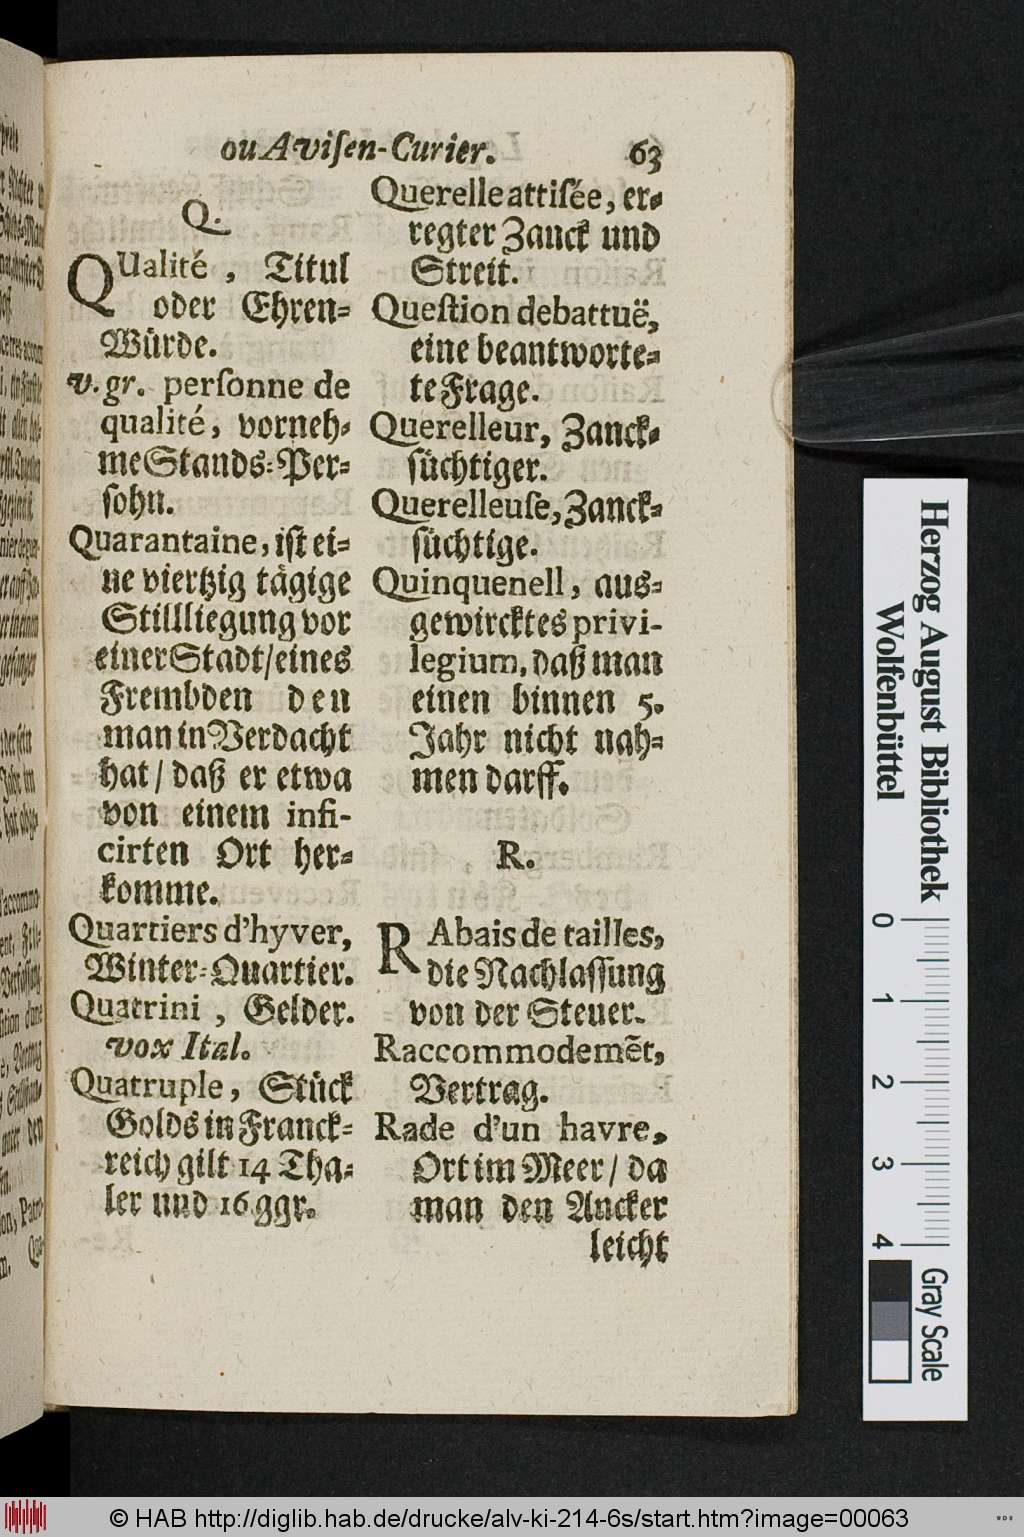 ou Aviſen-Curier. 63
Q.
QUalité, Titul
oder Ehren-
Würde.
v. gr. perſonne de
qualité, vorneh-
me Stands-Per-
ſohn.
Quarantaine, iſt ei-
ne viertzig tägige
Stillliegung vor
einer Stadt/eines
Frembden den
man in Verdacht
hat / daß er etwa
von einem infi-
cirten Ort her-
komme.
Quartiers d'hyver,
Winter-Quartier.
Quatrini, Gelder.
vox Ital.
Quatruple, Stück
Golds in Franck-
reich gilt 14 Tha-
ler und 16 ggr.
Querelle attiſée, er-
regter Zanck und
Streit.
Queſtion debattuë,
eine beantworte-
te Frage.
Querelleur, Zanck-
ſüchtiger.
Querelleuſe, Zanck-
ſüchtige.
Quinquenell, aus-
gewircktes privi-
legium, daß man
einen binnen 5.
Jahr nicht nah-
men darff.
R.
RAbais de tailles,
die Nachlaſſung
von der Steuer.
Raccommodemẽt,
Vertrag.
Rade d'un havre,
Ort im Meer / da
man den Ancker
leicht
Herzog August Bibliothek
Wolfenbüttel
0 1 2 3 4
Gray Scale
© HAB http://diglib.hab.de/drucke/alv-ki-214-6s/start.htm?image=00063